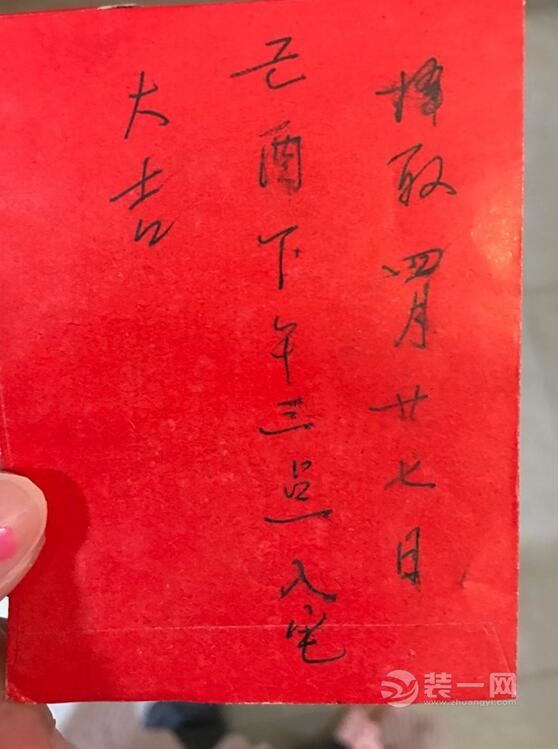 择取四月廿七日
己酉下午三点入宅
大吉
装一网
www.zhuangyi.com